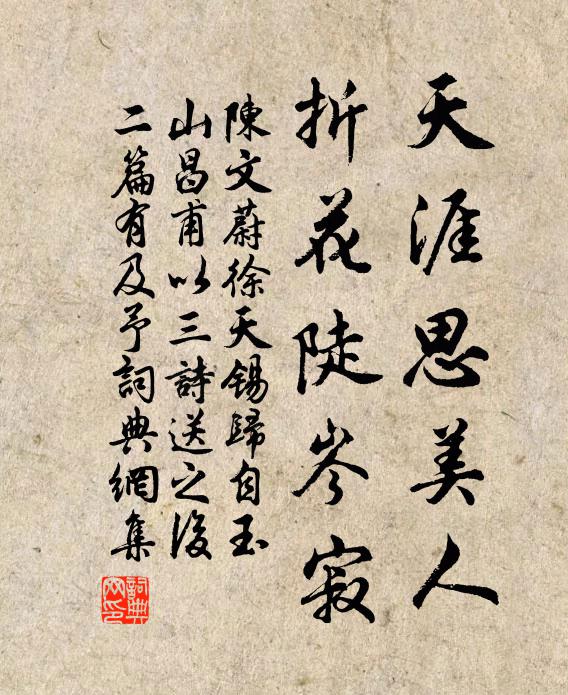 天涯思美人
折花陡岑寂
陳文蔚徐天錫歸自玉
山昌甫以三詩送之後
二篇有及予詞典網集
詞典
网印